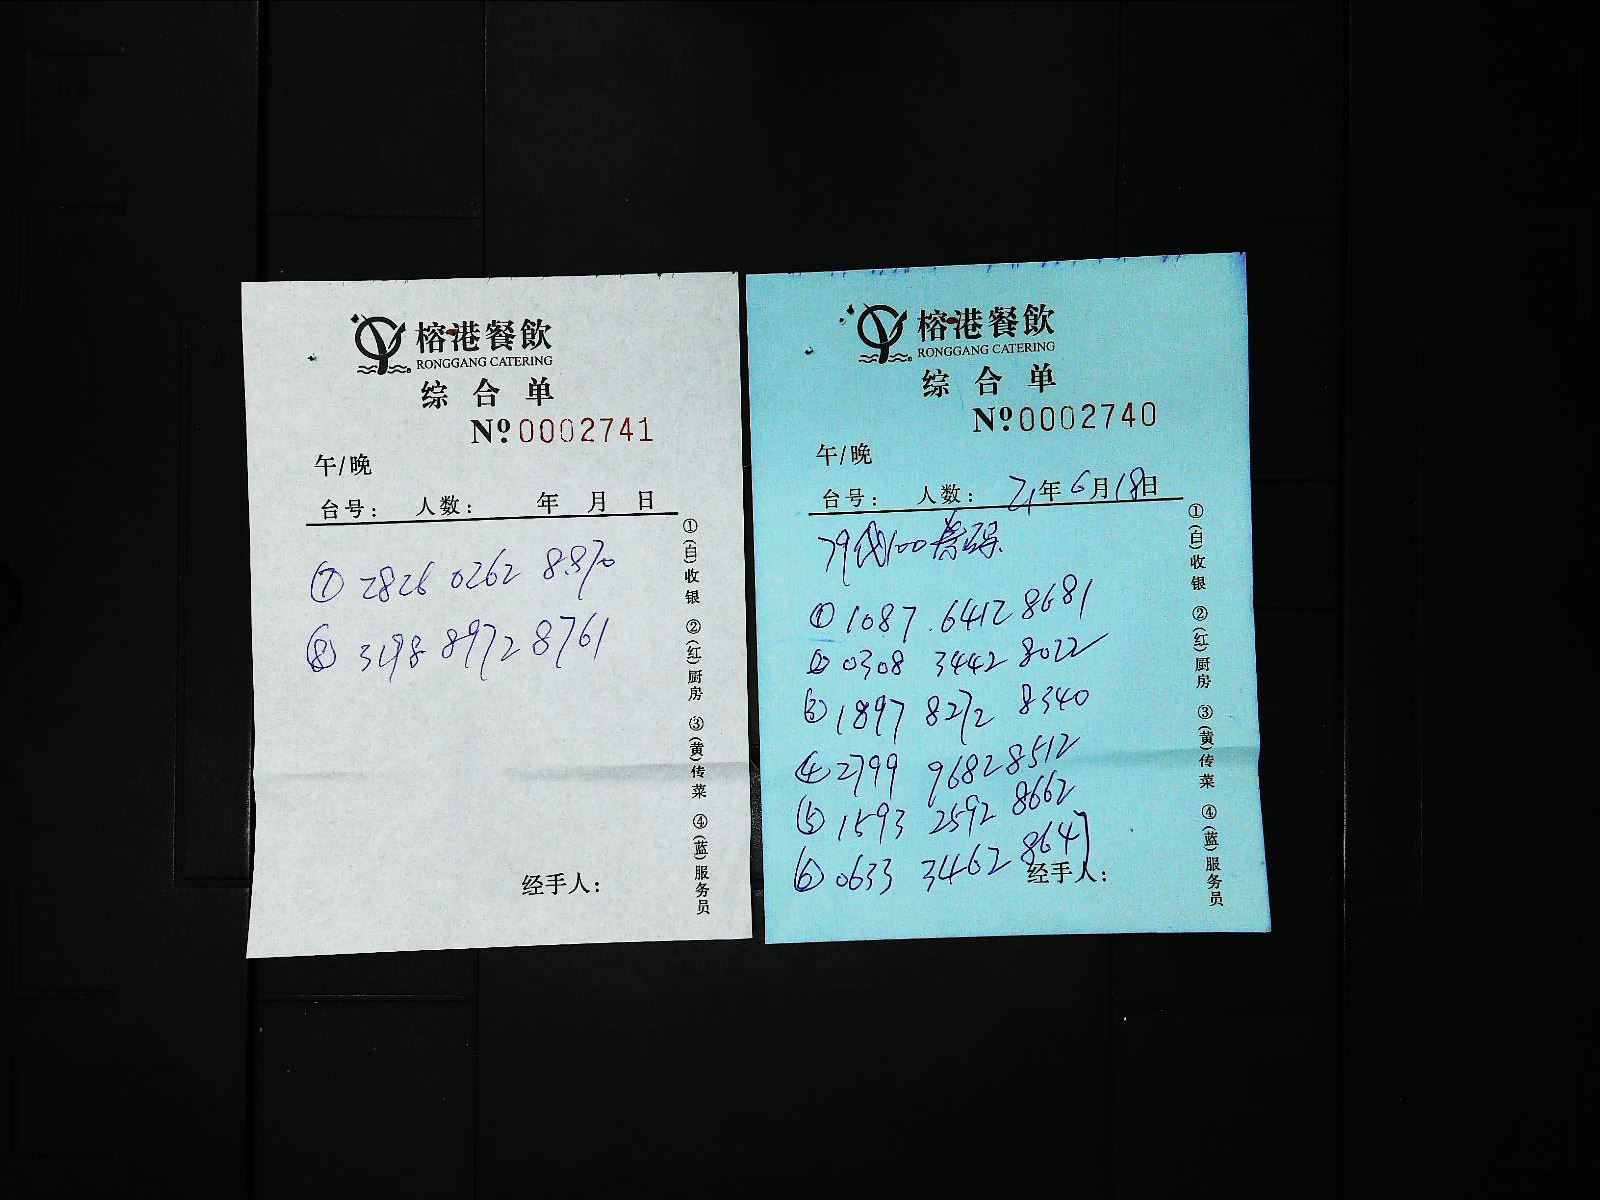 榕港餐飲
RONGGANG CATERING
综合单
Nº:0002741
午/晚
台号: 人数: 年 月 日
⑦ 2826 0262 8870
⑧ 3198 8972 8761
经手人:
①(白)收银 ②(红)厨房 ③(黄)传菜 ④(蓝)服务员
榕港餐飲
RONGGANG CATERING
综合单
Nº:0002740
午/晚
台号: 人数: 21年6月18日
79代100券码.
① 1087.6412 8681
② 0308 3442 8022
③ 1897 8272 8340
④ 2799 9682 8512
⑤ 1593 2592 8662
⑥ 0633 3462 8647
经手人:
①(白)收银 ②(红)厨房 ③(黄)传菜 ④(蓝)服务员